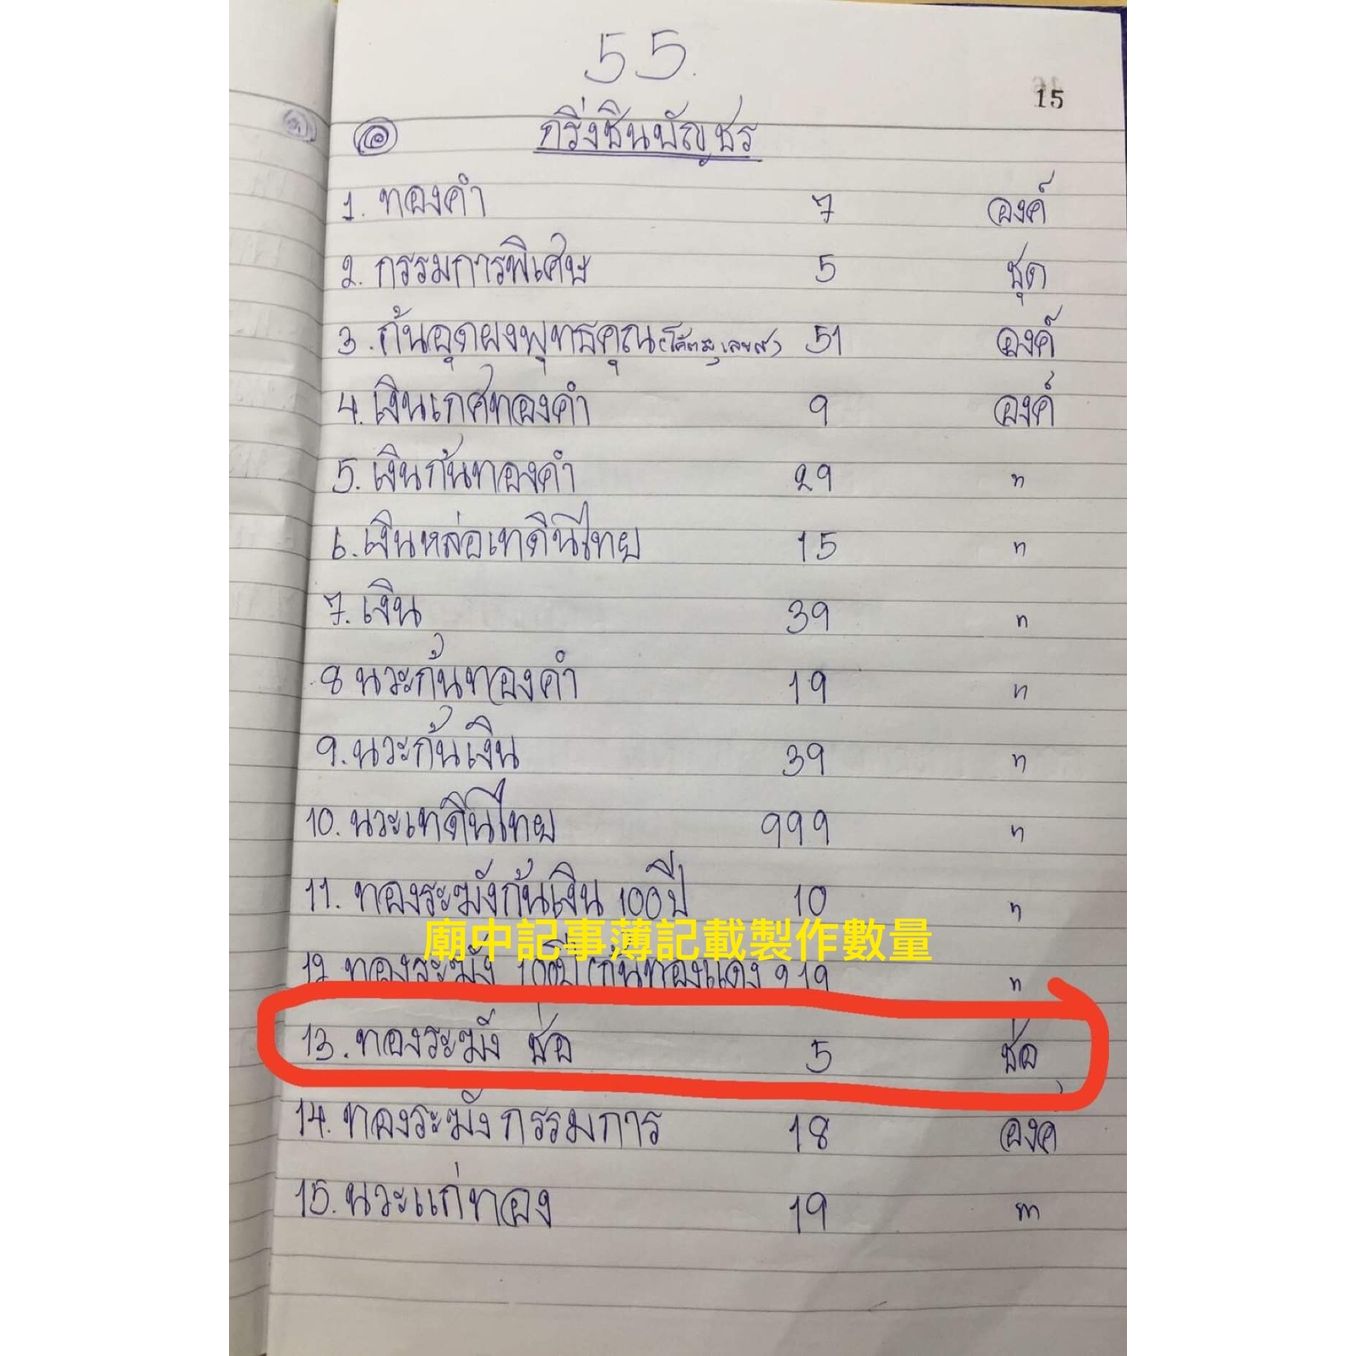 55.
15
กริ่งชินบัญชร
1. ทองคำ 7 องค์
2. กรรมการพิเศษ 5 ชุด
3. ก้นอุดผงพุทธคุณ 51 องค์
4. เงินเกศทองคำ 9 องค์
5. เงินก้นทองคำ 29 "
6. เงินหล่อเทดินไทย 15 "
7. เงิน 39 "
8 นวะก้นทองคำ 19 "
9. นวะก้นเงิน 39 "
10. นวะเทดินไทย 999 "
11. ทองระฆังก้นเงิน 100ปี 10 "
廟中記事薄記載製作數量
12 ทองระฆัง 100ปี (ก้นทองแดง 919 "
13. ทองระฆัง ช่อ 5 ช่อ
14. ทองระฆังกรรมการ 18 องค์
15. นวะแก่ทอง 19 "